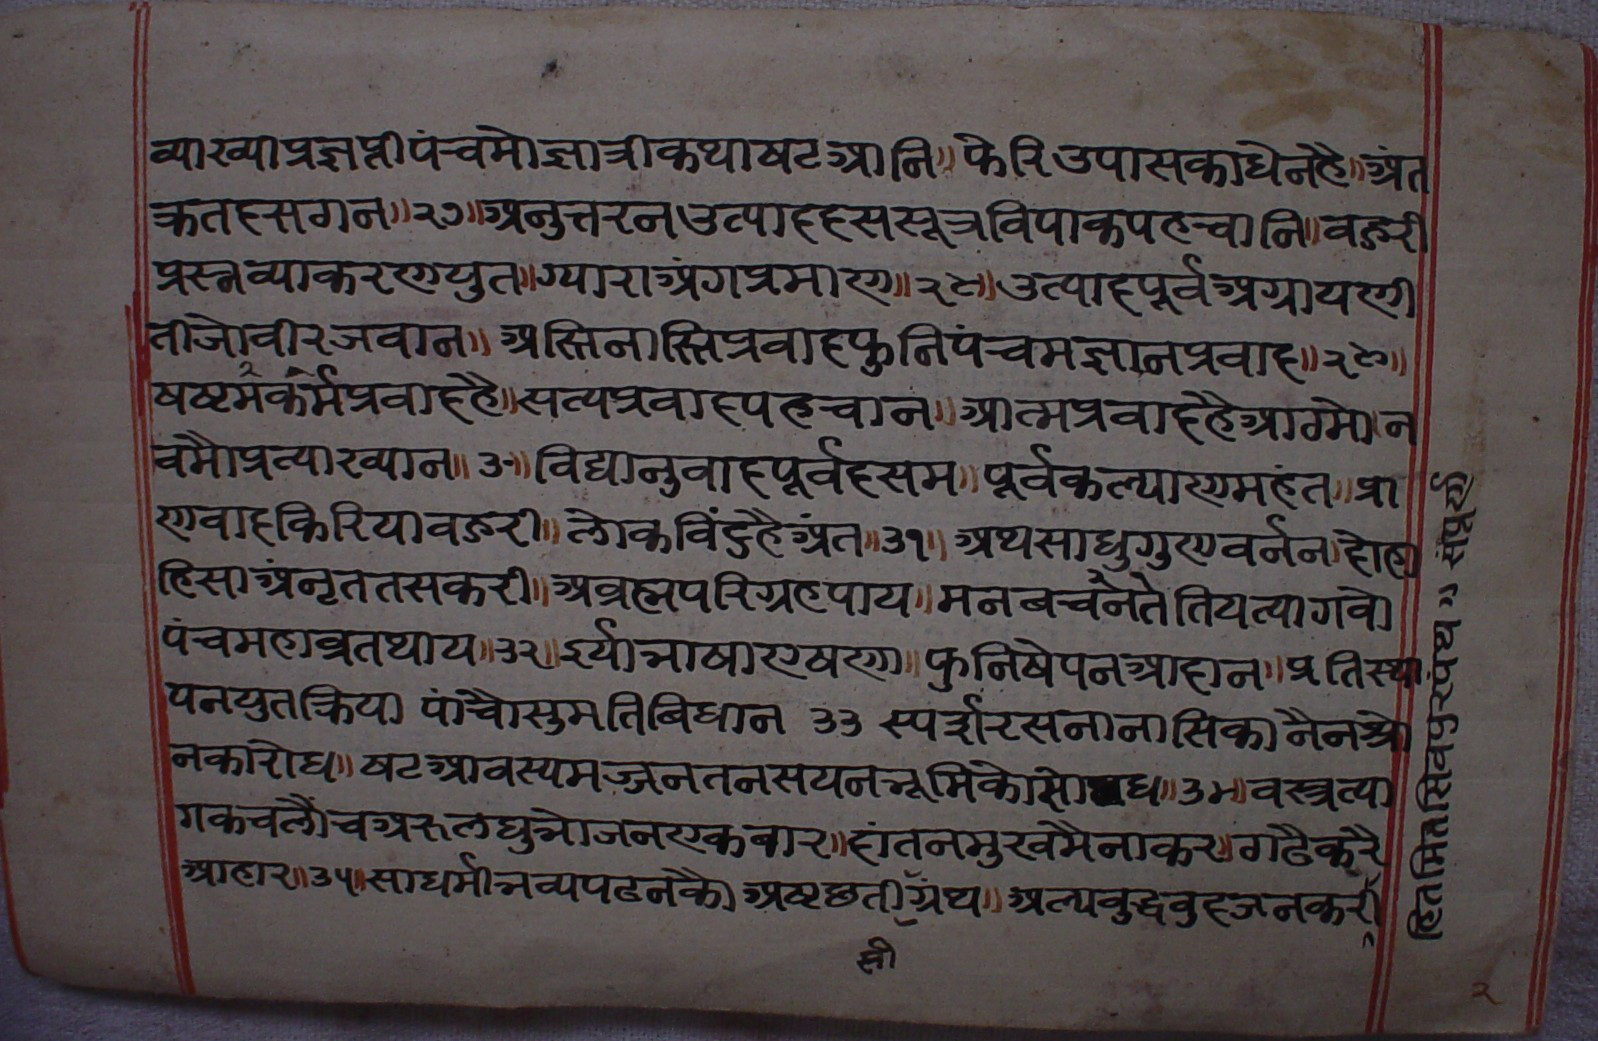 व्याख्याप्रज्ञप्तीपंचमोज्ञात्रीकथाषटआनि॥फेरिउपासकाधेनहै॥अंत
क्रतदसगन॥२७॥अनुत्तरनउत्पाददससूत्रविपाकपहचानि॥वऊरी
प्रस्नव्याकरणयुत॥ग्याराअंगप्रमाण॥२८॥उत्पादपूर्वअग्रायणी
तीजोवीरजवान॥अस्तिनास्तिप्रवादफुनिपंचमज्ञानप्रवाद॥२९॥
षष्टमकर्मप्रवादहै॥सत्यप्रवादपहचान॥आत्मप्रवादहैआठमोन
वमौप्रत्याख्यान॥३०॥विद्यानुवादपूर्वदसम॥पूर्वकल्याणमहंत॥प्रा
णवादकिरियावऊरी॥लोकविंदुहैअंत॥३१॥अथसाधुगुणवर्नन।दोहा
हिसाअंनृततसकरी॥अव्रह्मपरिग्रहपाय॥मनबचनतेतियत्यागवो
पंचमहाव्रतथाय॥३२॥ईर्याभाषाएषणा॥फुनिषेपनआदान॥प्रतिस्था
पनयुतक्रिया पांचौसुमतिबिधान ३३ स्पर्शरसनानासिकानैनश्रो
नकारोध॥षटआवस्यमज्जनतनसयनभूमिकोसोध॥३४॥वस्त्रत्या
गकचलौंचअरुलघुभोजनएकबार॥दांतनमुखमैनाकर॥गढैकरै
आहार॥३५॥साधर्मीभव्यपढनकै।अष्टछतीग्रंथ॥अल्पवुद्धवुदजनकरी
सी
हितमितसिवपुरपंथ॥ संपूर्ण
२